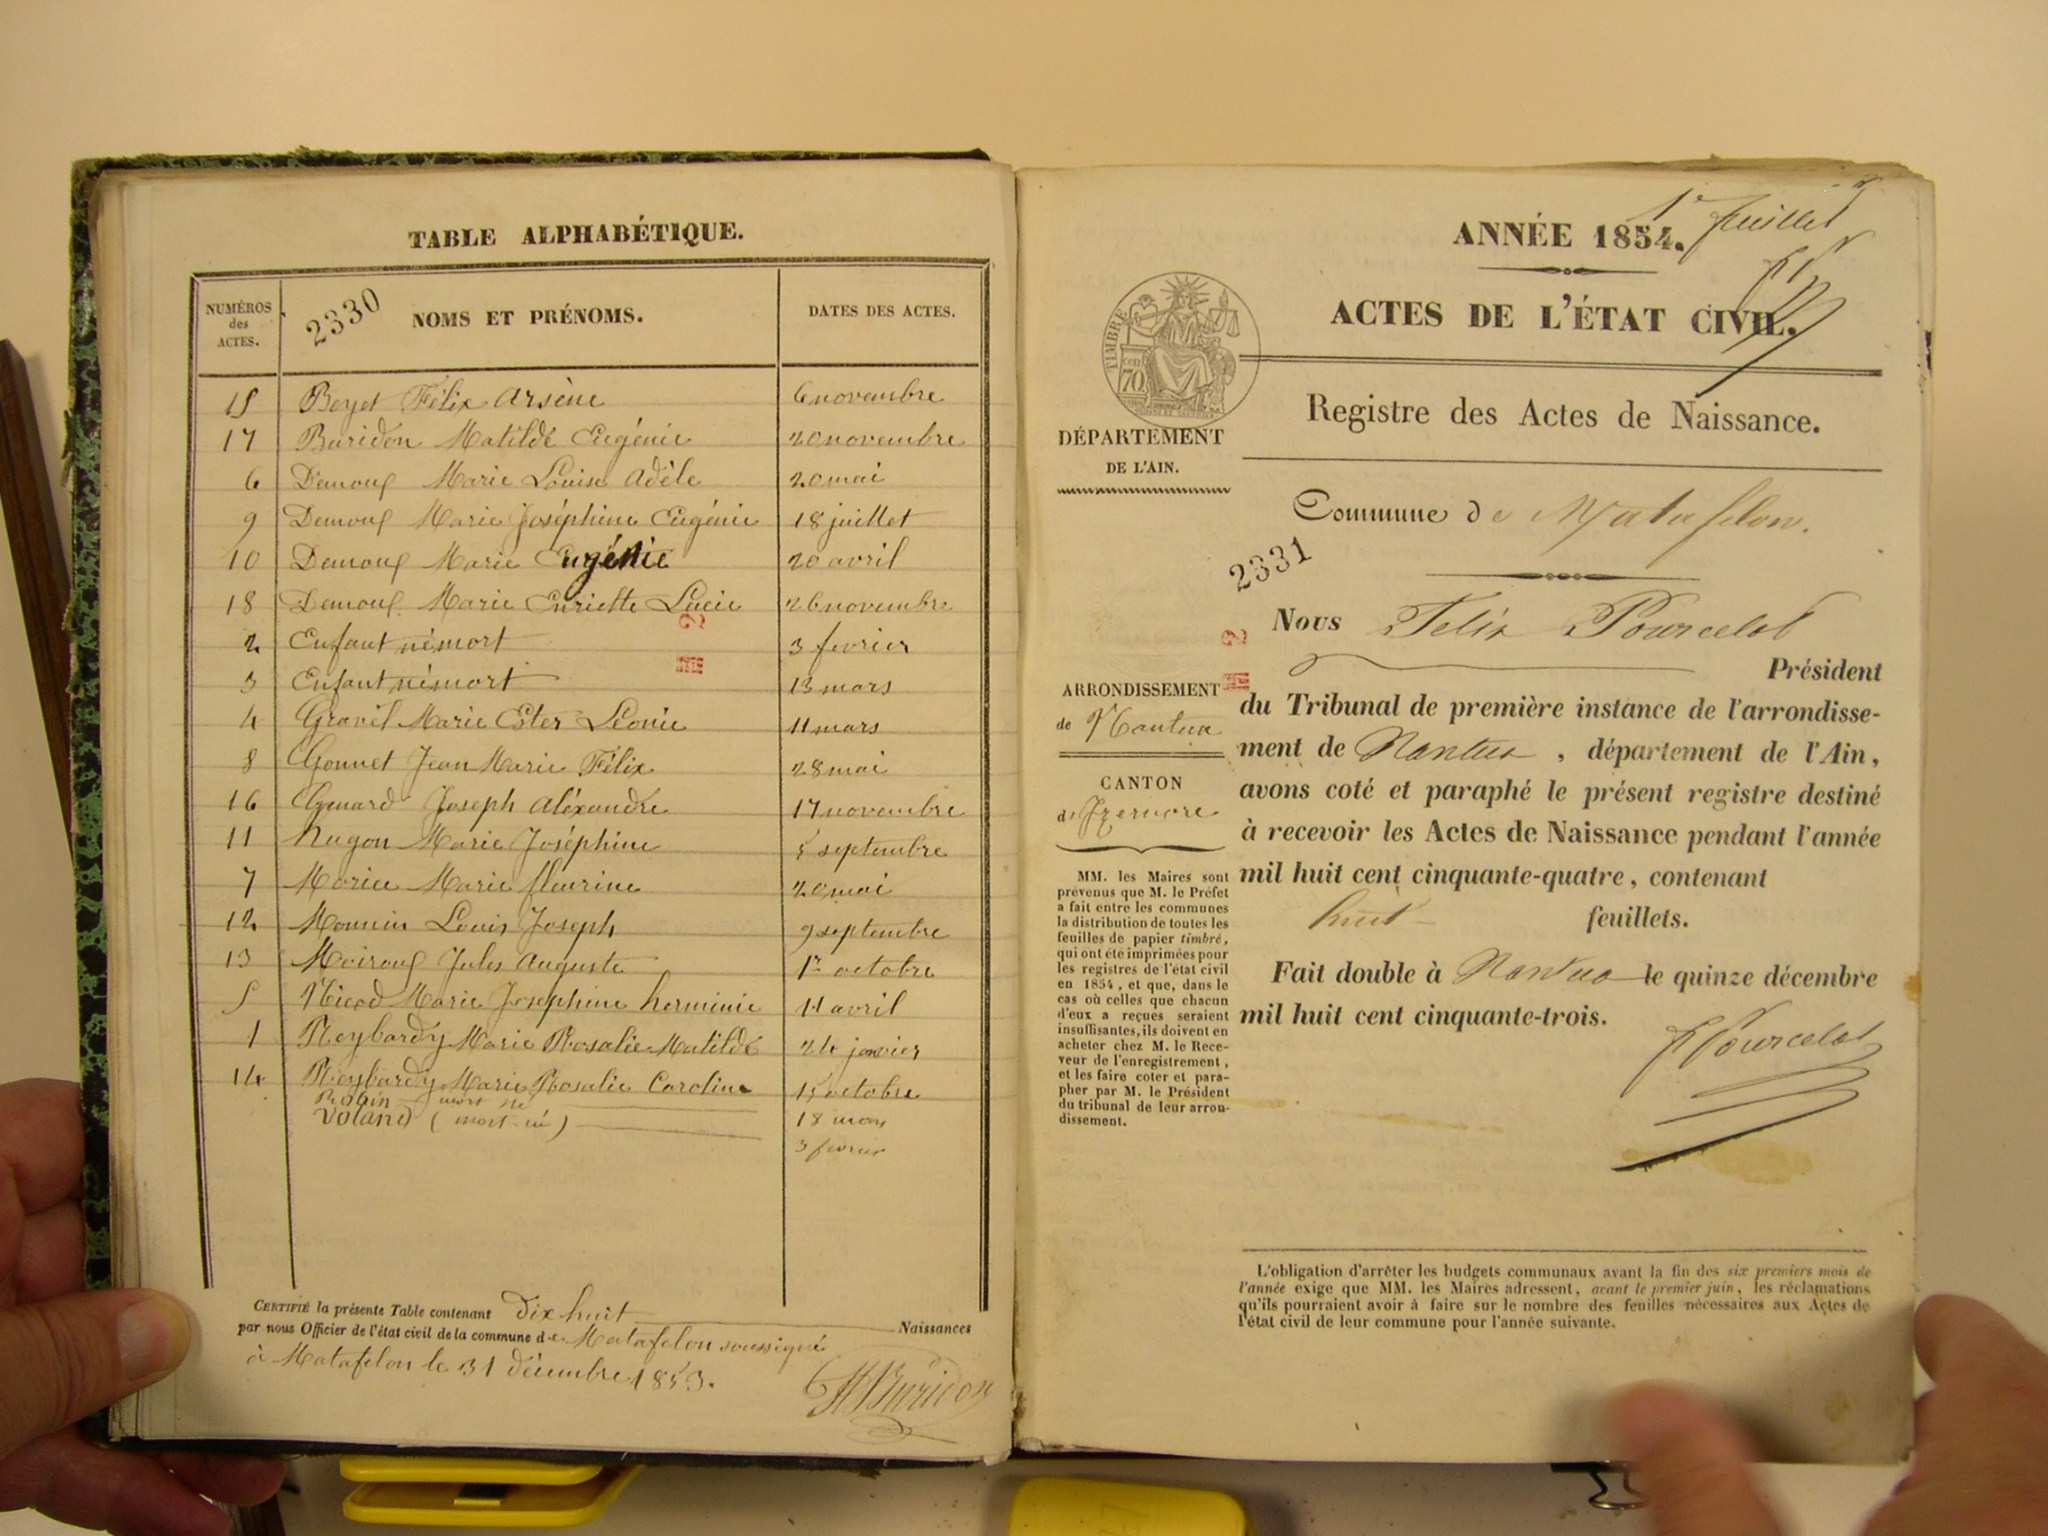 TABLE ALPHABÉTIQUE.
NUMÉROS des ACTES.
2330
NOMS ET PRÉNOMS.
DATES DES ACTES.
15 Beyet Félix Arsène 6 novembre
17 Buridon Matilde Eugénie 20 novembre
6 Demouf Marie Louise Adèle 20 mai
9 Demouf Marie Joséphine Eugénie 18 juillet
10 Demouf Marie Eugénie 20 avril
18 Demouf Marie Enriette Lucie 26 novembre
2 Enfant né mort 3 fevrier
3 Enfant né mort 13 mars
4 Gravil Marie Ester Léonie 11 mars
8 Gonnet Jean Marie Félix 28 mai
16 Guenard Joseph Aléxandre 17 novembre
11 hugon Marie Joséphine 5 septembre
7 Marie fleurine 20 mai
12 Mounin Louis Joseph 9 septembre
13 Moirouf Jules Auguste 1er octobre
5 Nicod Marie Josephine herminie 11 avril
1 Reybardy Marie Rosalie Matilde 24 janvier
14 Reybardy Marie Rosalie Caroline 15 octobre
Robin mort né 18 mars
Voland (mort-né) 3 fevrier
CERTIFIÉ la présente Table contenant dix huit Naissances
par nous Officier de l'état civil de la commune de Matafelon soussigné
à Matafelon le 31 décembre 1853.
Buridon
1er feuillet
ANNÉE 1854.
ACTES DE L'ÉTAT CIVIL.
TIMBRE
70
Registre des Actes de Naissance.
DÉPARTEMENT
DE L'AIN.
Commune de Matafelon.
2331
Nous Félix Pourcelot
Président
ARRONDISSEMENT
de Nantua
CANTON
d'Izernore
du Tribunal de première instance de l'arrondisse-
ment de Nantua, département de l'Ain,
avons coté et paraphé le présent registre destiné
à recevoir les Actes de Naissance pendant l'année
mil huit cent cinquante-quatre, contenant
huit feuillets.
Fait double à Nantua le quinze décembre
mil huit cent cinquante-trois.
F Pourcelot
MM. les Maires sont
prévenus que M. le Préfet
a fait entre les communes
la distribution de toutes les
feuilles de papier timbré,
qui ont été imprimées pour
les registres de l'état civil
en 1854, et que, dans le
cas où celles que chacun
d'eux a reçues seraient
insuffisantes, ils doivent en
acheter chez M. le Rece-
veur de l'enregistrement,
et les faire coter et para-
pher par M. le Président
du tribunal de leur arron-
dissement.
L'obligation d'arrêter les budgets communaux avant la fin des six premiers mois de
l'année exige que MM. les Maires adressent, avant le premier juin, les réclamations
qu'ils pourraient avoir à faire sur le nombre des feuilles nécessaires aux Actes de
l'état civil de leur commune pour l'année suivante.